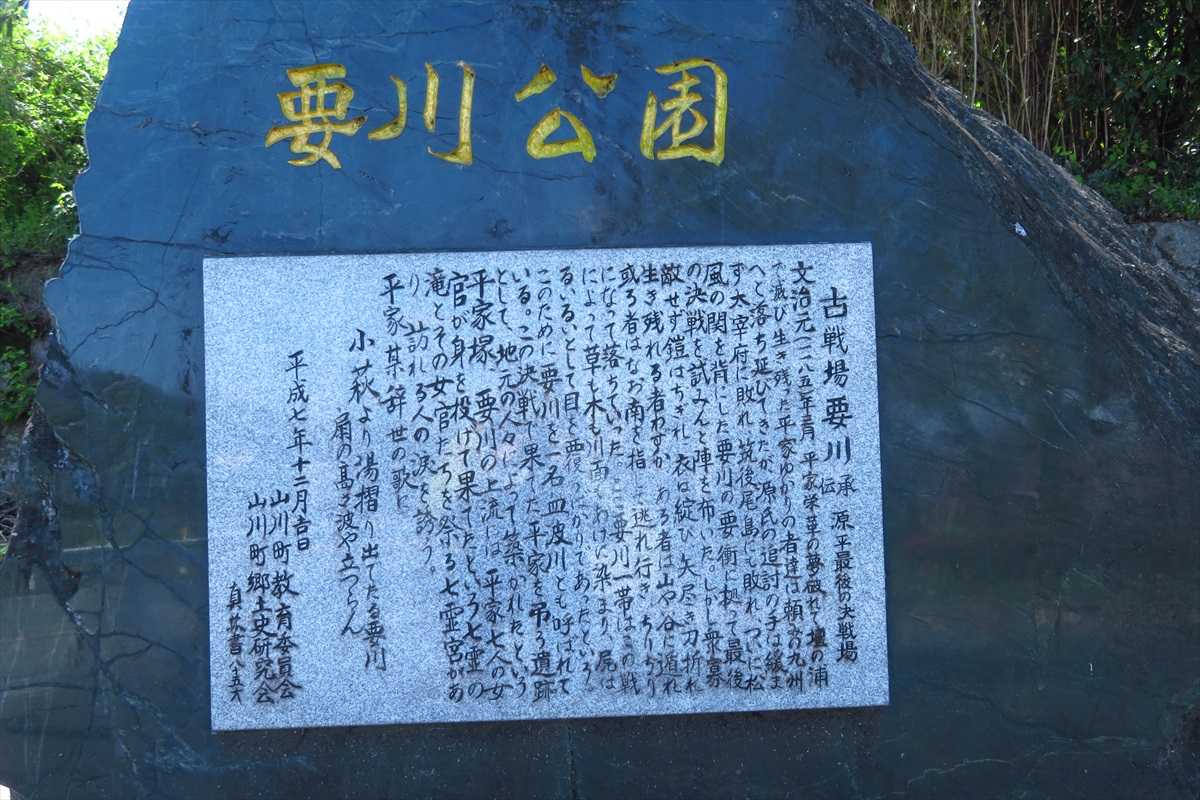 要川公園
古戦場要川 伝承 源平最後の決戦場
文治元(一一八五)年春 平家栄華の夢破れて壇の浦
で滅び生き残った平家ゆかりの者達は頼みの九州
へと落ち延びてきたが源氏の追討の手は緩ま
ず大宰府に敗れ、筑後尾島にも敗れ、ついに松
風の関を背にした要川の要衝に拠って最後
の決戦を試みんと陣を布いた。しかし衆寡
敵せず鎧はちぎれ、衣は綻び矢尽き刀折れ
生き残れる者わずか ある者は山や谷に遁れ
或る者はなお南を指して逃れ行き、ちりぢり
になって落ちていった。 要川一帯はこの戦
によって草も木も川面も 染まり、屍は
るいるいとして目を覆うばかりであったという。
このために要川を一名血波川とも呼ばれて
いる。この決戦で果てた平家を弔う遺跡
として、地元の人々によって築かれたという
平家塚 要川の上流には平家七人の女
官が身を投げて果てたという七霊の
滝とその女官たちを祭る七霊宮があ
り、訪れる人の涙を誘う。
平家某辞世の歌に
小萩より湯摺り出でたる要川
扇の高之波や立つらん
平成七年十二月吉日
山川町教育委員会
山川町郷土史研究会